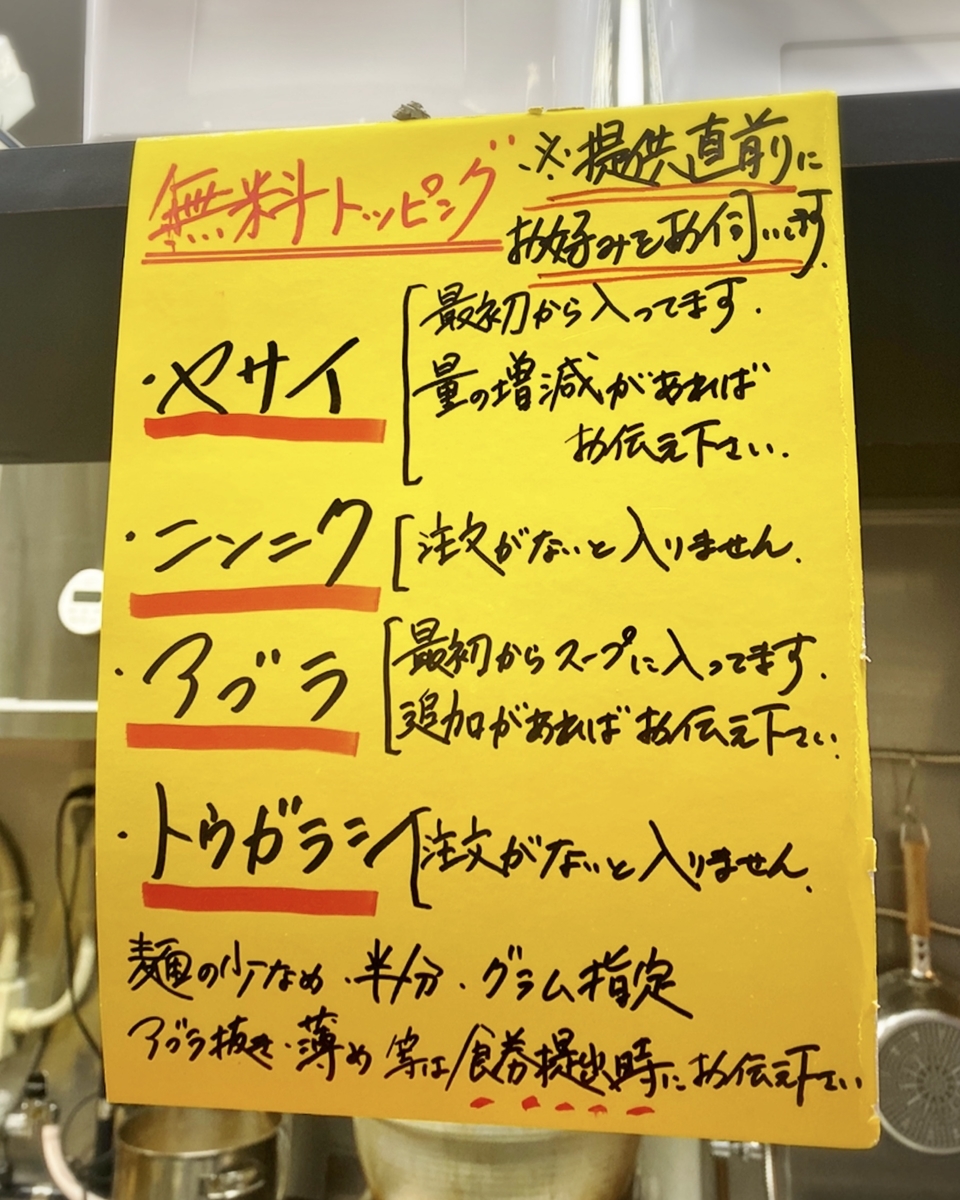 無料トッピング
※提供直前に
お好みをお伺いします.
・ヤサイ
最初から入ってます.
量の増減があれば
お伝え下さい.
・ニンニク
注文がないと入りません.
・アブラ
最初からスープに入ってます.
追加があればお伝え下さい.
・トウガラシ
注文がないと入りません.
麺の少なめ・半分・グラム指定
アブラ抜き・薄め等は食券提出時にお伝え下さい